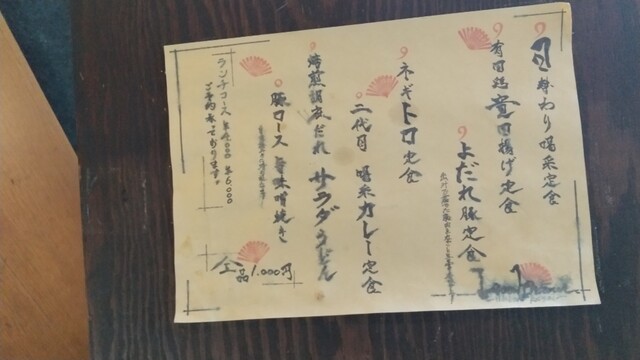 日替わり喝采定食
有田鶏竜田揚げ定食
よだれ豚定食
ネギトロ定食
二代目 喝采カレー定食
焙煎胡麻だれ サラダうどん
豚ロース 旨味噌焼き
全品1.000円
ランチコース ¥4,000 ¥6,000
ご予約承っております。